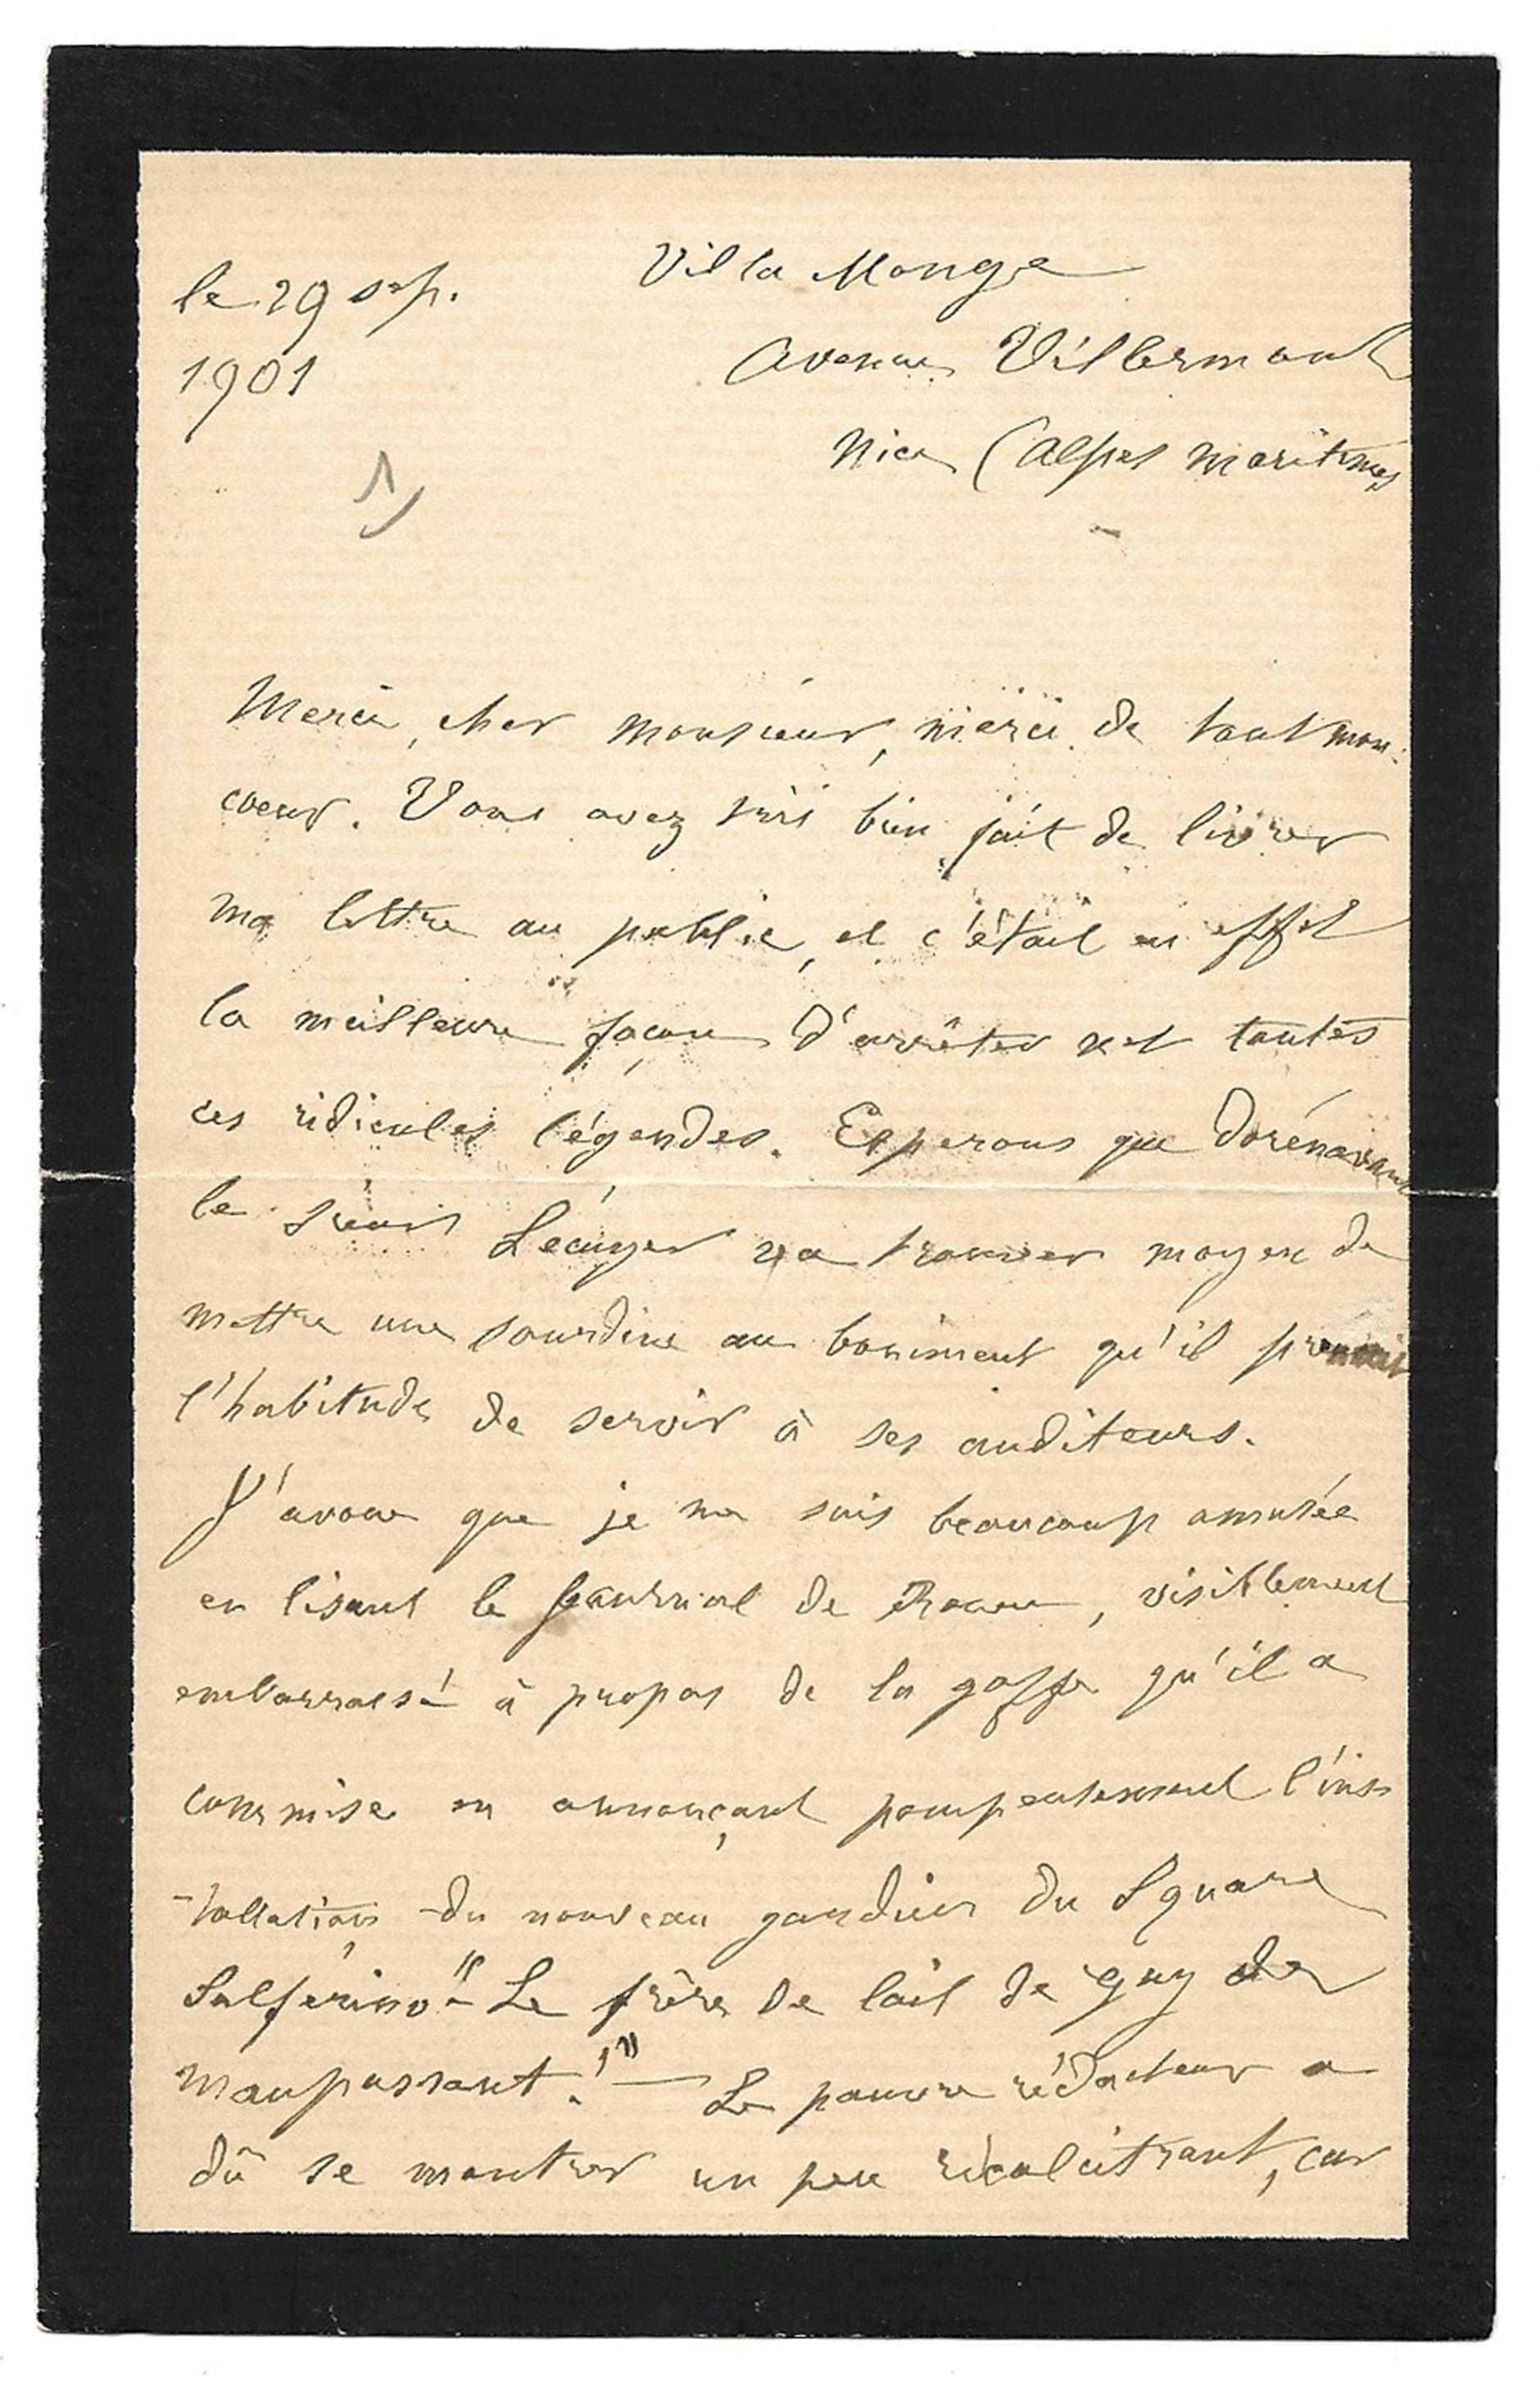 le 29 sep.
1901
Villa Monge
Avenue Villermont
Nice (Alpes Maritimes
1)
Merci, cher monsieur, merci de tout mon
coeur. Vous avez très bien fait de livrer
ma lettre au public, et c'était en effet
la meilleure façon d'arrêter net toutes
ces ridicules légendes. Esperons que dorénavant
le sieur Lecuyer va trouver moyen de
mettre une sourdine au boniment qu'il prenait
l'habitude de servir à ses auditeurs.
J'avoue que je me suis beaucoup amusée
en lisant le Journal de Rouen, visiblement
embarrassé à propos de la gaffe qu'il a
commise en annonçant pompeusement l'ins
-tallation du nouveau gardien du Square
Solférino "- Le frère de lait de Guy de
Maupassant!" — Le pauvre rédacteur a
dû se montrer un peu récalcitrant, car